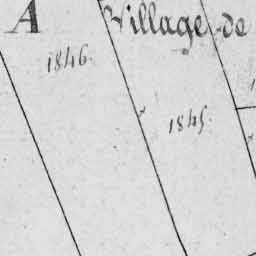 A Village de
1846.
1845.